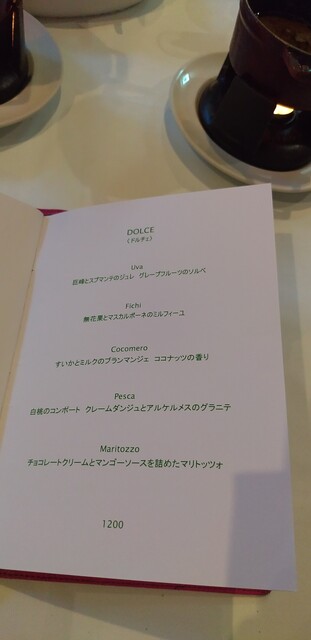 DOLCE
（ドルチェ）
Uva
巨峰とスプマンテのジュレ グレープフルーツのソルベ
Fichi
無花果とマスカルポーネのミルフィーユ
Cocomero
すいかとミルクのブランマンジェ ココナッツの香り
Pesca
白桃のコンポート クレームダンジュとアルケルメスのグラニテ
Maritozzo
チョコレートクリームとマンゴーソースを詰めたマリトッツォ
1200